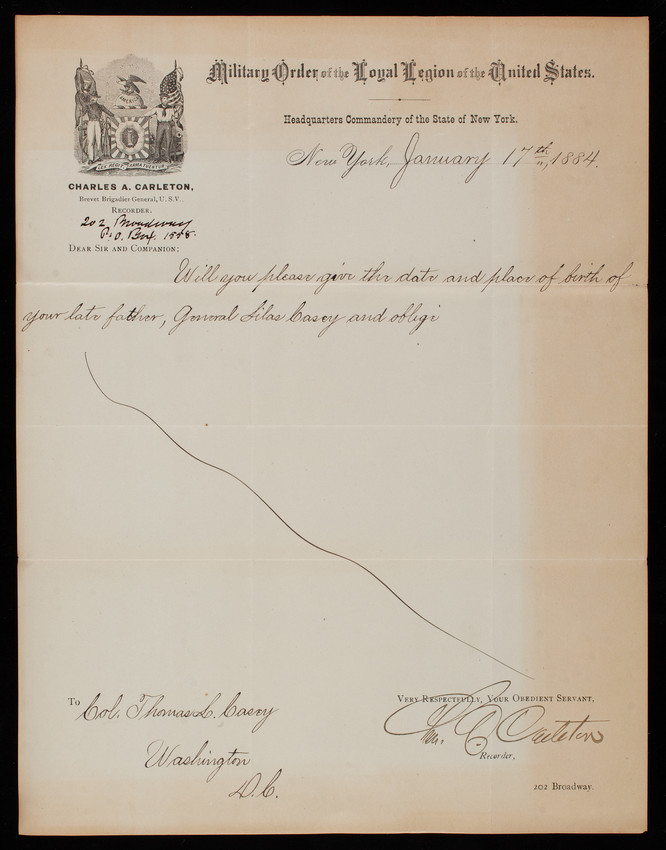 Military Order of the Loyal Legion of the United States.
Headquarters Commandery of the State of New York.
New York, January 17th, 1884.
AMERICA
LEX REGIT ARMA TUENTUR
CHARLES A. CARLETON,
Brevet Brigadier General, U. S. V.,
RECORDER.
202 Broadway
P. O. Box. 1558.
DEAR SIR AND COMPANION:
Will you please give the date and place of birth of
your late father, General Silas Casey and oblige
VERY RESPECTFULLY, YOUR OBEDIENT SERVANT,
Chas. A. Carleton
Recorder,
202 Broadway.
To Col. Thomas L. Casey
Washington
D.C.